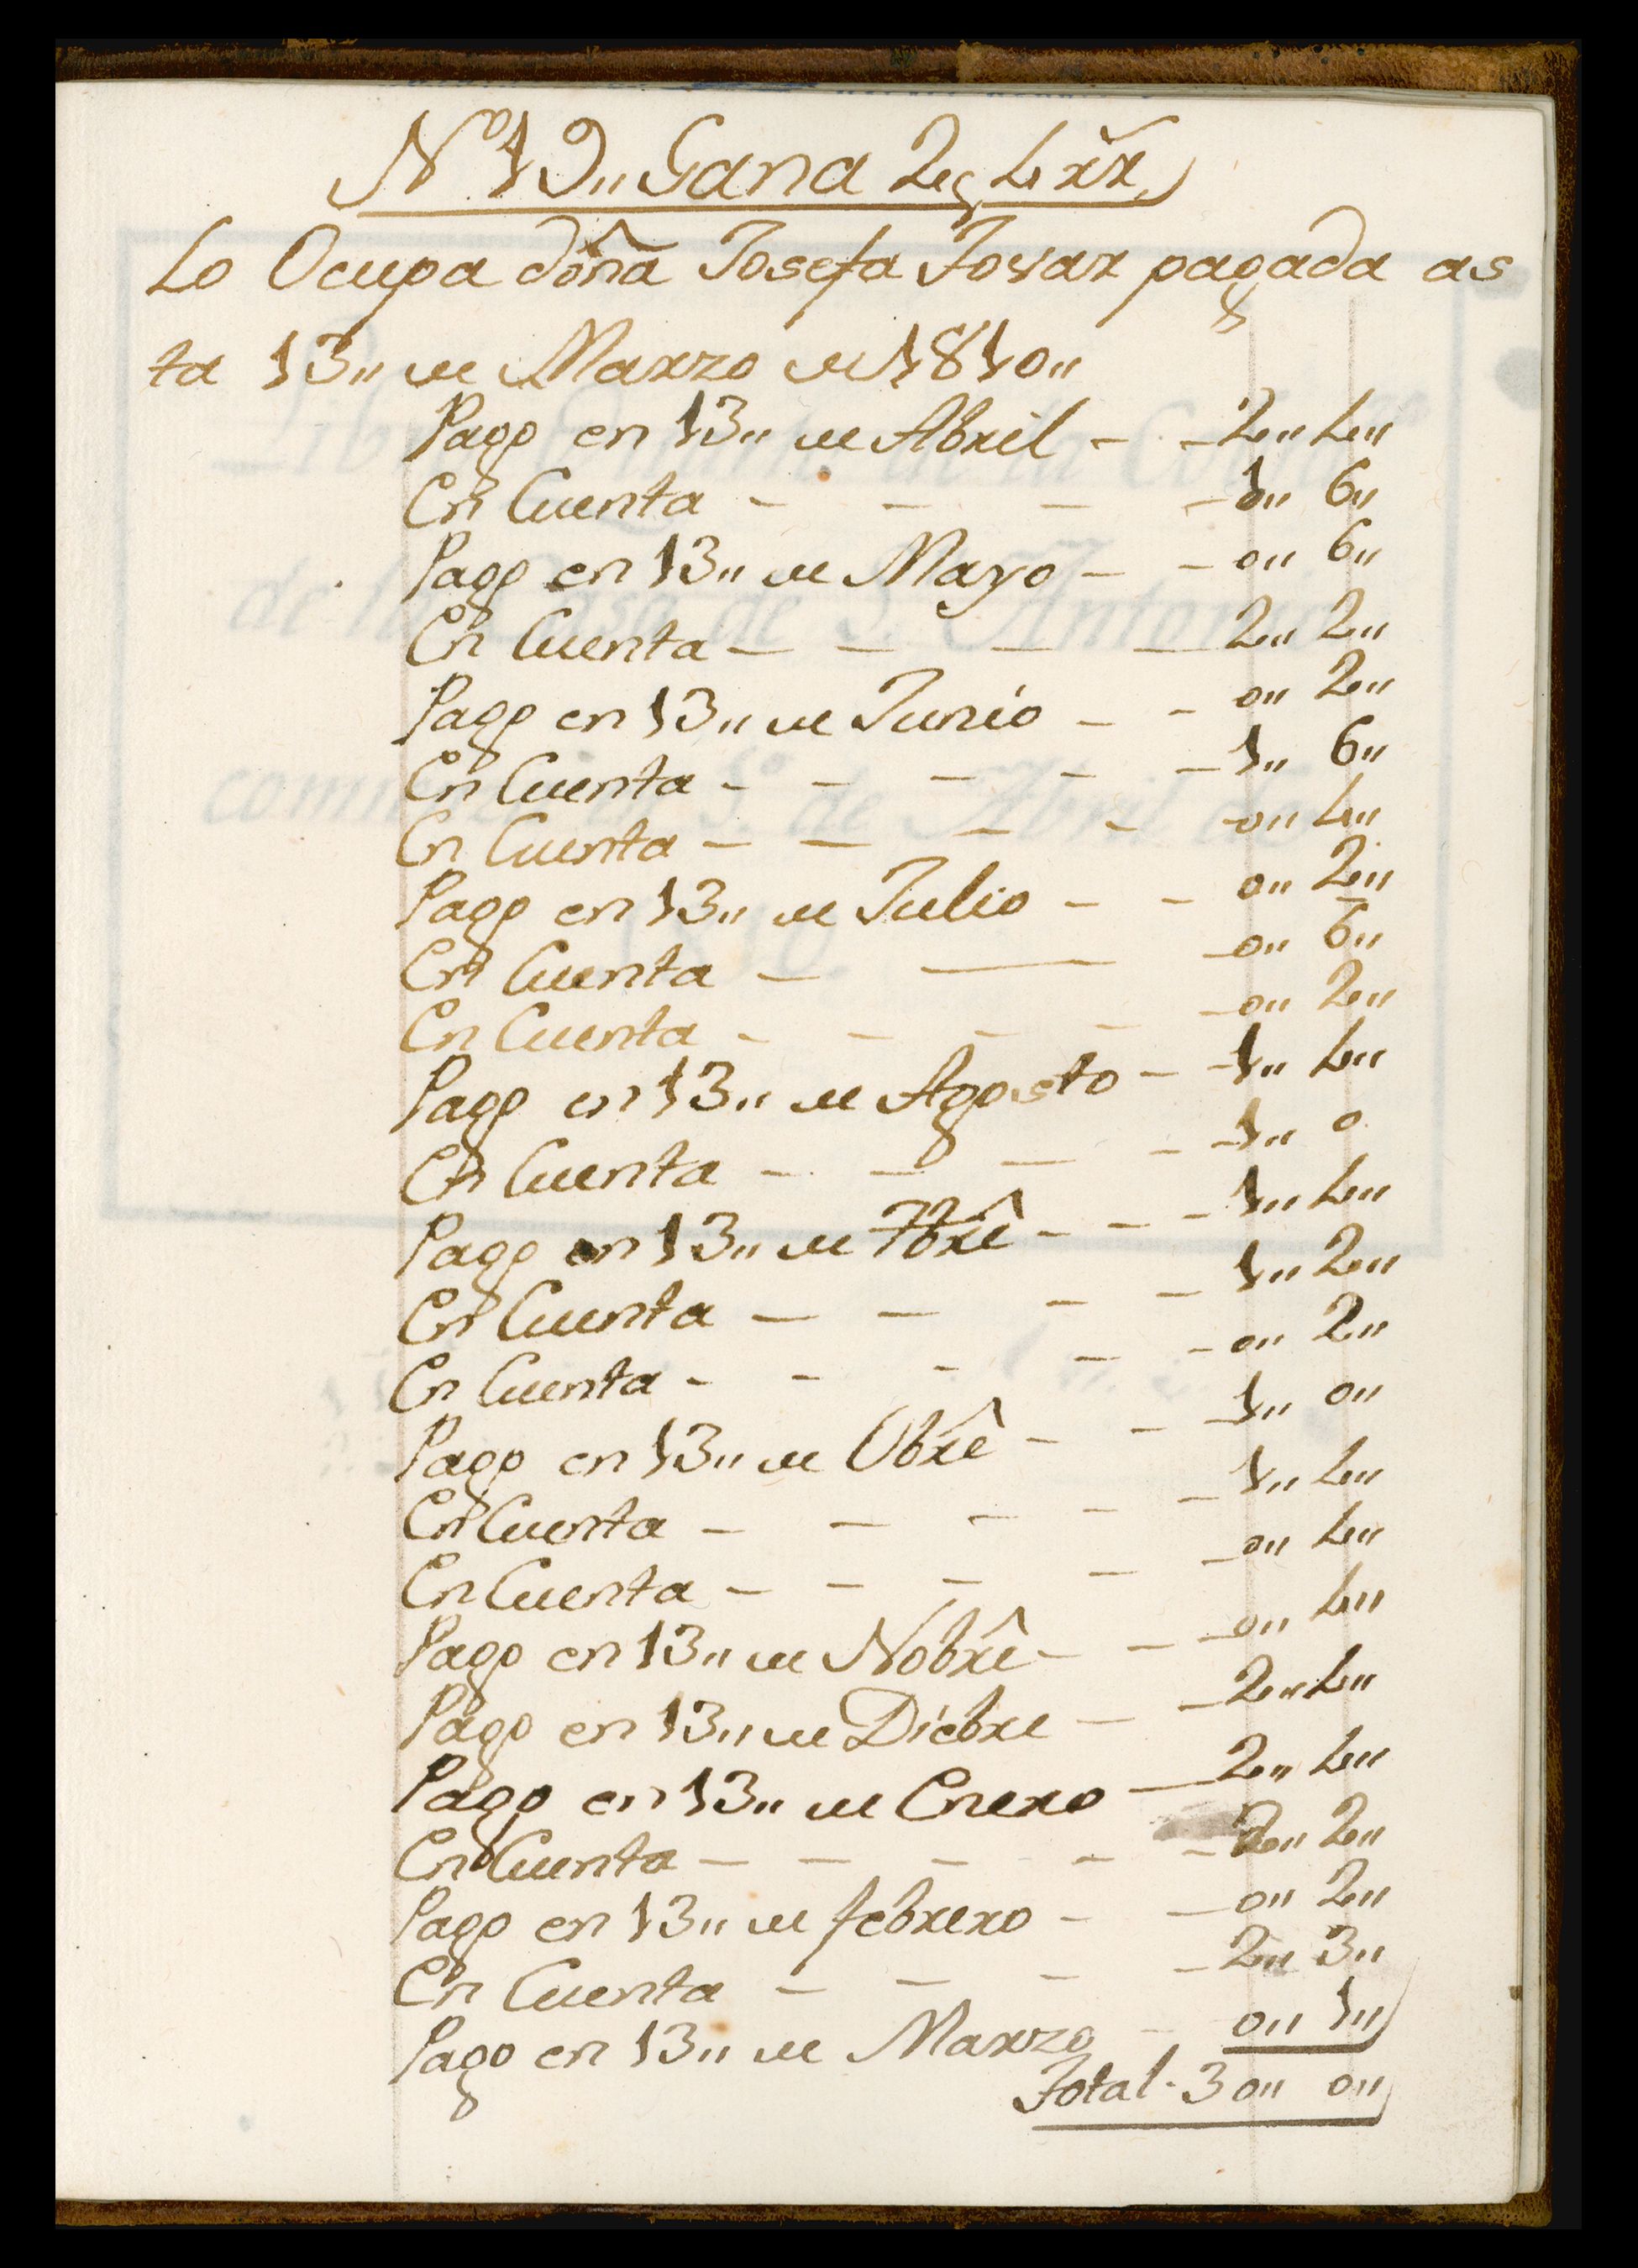 Nº 19,, Gana 2 ps 4 rr,
Lo Ocupa doña Josefa Tovar pagada as
ta 13,, de Marzo de 1810,,
Pago en 13,, de Abril - - 2,, 4,,
En Cuenta - - - - 1,, 6,,
Pago en 13,, de Mayo - - 0,, 6,,
En Cuenta - - - - 2,, 2,,
Pago en 13,, de Junio - - 0,, 2,,
En Cuenta - - - - - 1,, 6,,
En Cuenta - - - - - 0,, 4,,
Pago en 13,, de Julio - - 0,, 2,,
En Cuenta - - - 0,, 6,,
En Cuenta - - - - - 0,, 2,,
Pago en 13,, de Agosto - - 1,, 4,,
En Cuenta - - - - - 1,, 0
Pago en 13,, de 7brê - - - 1,, 4,,
En Cuenta - - - - 1,, 2,,
En Cuenta - - - - - 0,, 2,,
Pago en 13,, de Obrê - - - 1,, 0,,
En Cuenta - - - - - 1,, 4,,
En Cuenta - - - - - 0,, 4,,
Pago en 13,, de Nobrê - - - 0,, 4,,
Pago en 13,, de Diebre - - 2,, 4,,
Pago en 13,, de Enero - 2,, 4,,
En Cuenta - - - - - 2,, 2,,
Pago en 13,, de febrero - - 0,, 2,,
En Cuenta - - - - 2,, 3,,
Pago en 13,, de Marzo - 0,, 1,,
Total - 30,, 0,,